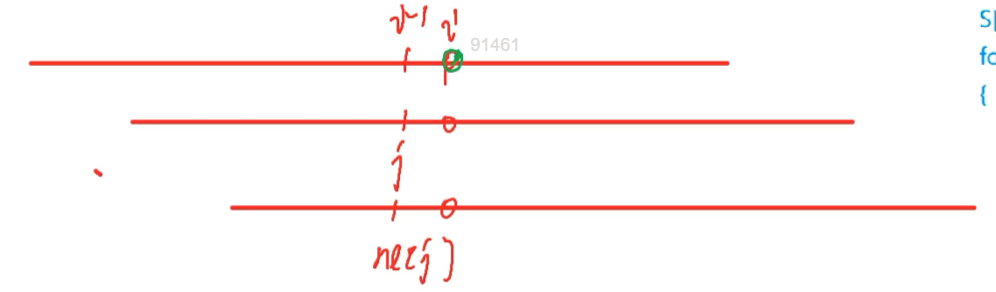 i-1 i
91461
j
ne[j]